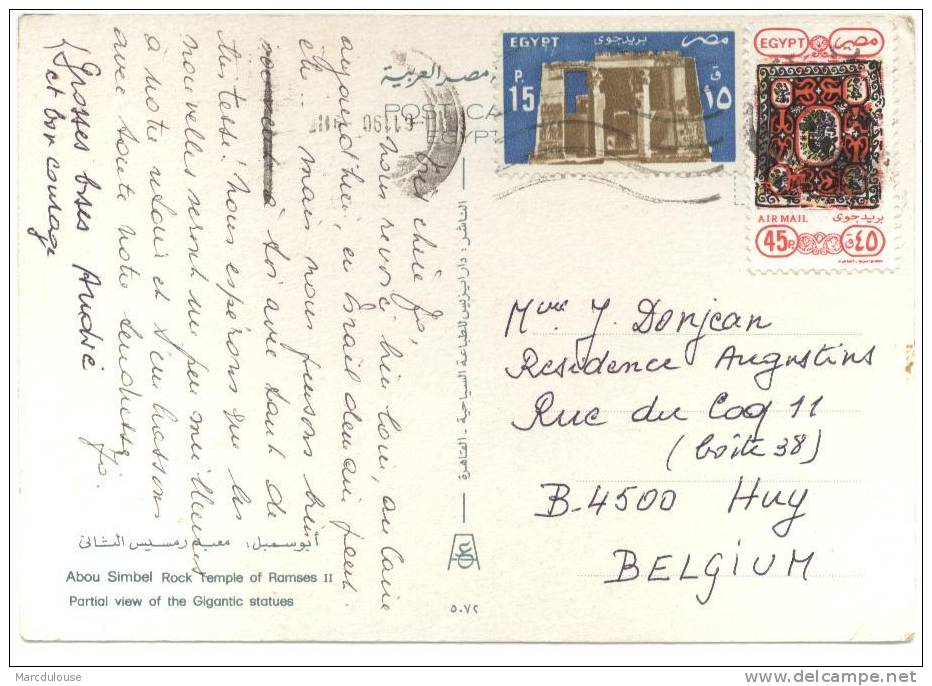 EGYPT بريد جوى مصر
P. 15 ق ١٥
EGYPT مصر
AIR MAIL بريد جوى
45 P. ق ٤٥
مصر العربية
POST CA
EGYPT
6.11.90
Très chère Jo,
Nous revoici bien loin, au Caire
aujourd'hui, en Israël demain peut-
être... mais nous pensons bien
à toi avec tant de
tristesse! Nous espérons que les
nouvelles seront un peu meilleures
à notre retour et t'embrassons
avec toute notre tendresse,
Jo.
Grosses bises André
et bon courage
Mme J. Donjean
Residence Augustins
Rue du Coq 11
(boîte 38)
B-4500 Huy
BELGIUM
الناشر : دار ايزيس للطباعه السياحية - القاهرة
أبو سمبل: معبد رمسيس الثانى
Abou Simbel Rock Temple of Ramses II
Partial view of the Gigantic statues
٥٠٧٢
Marcdulouse
delcampe.net